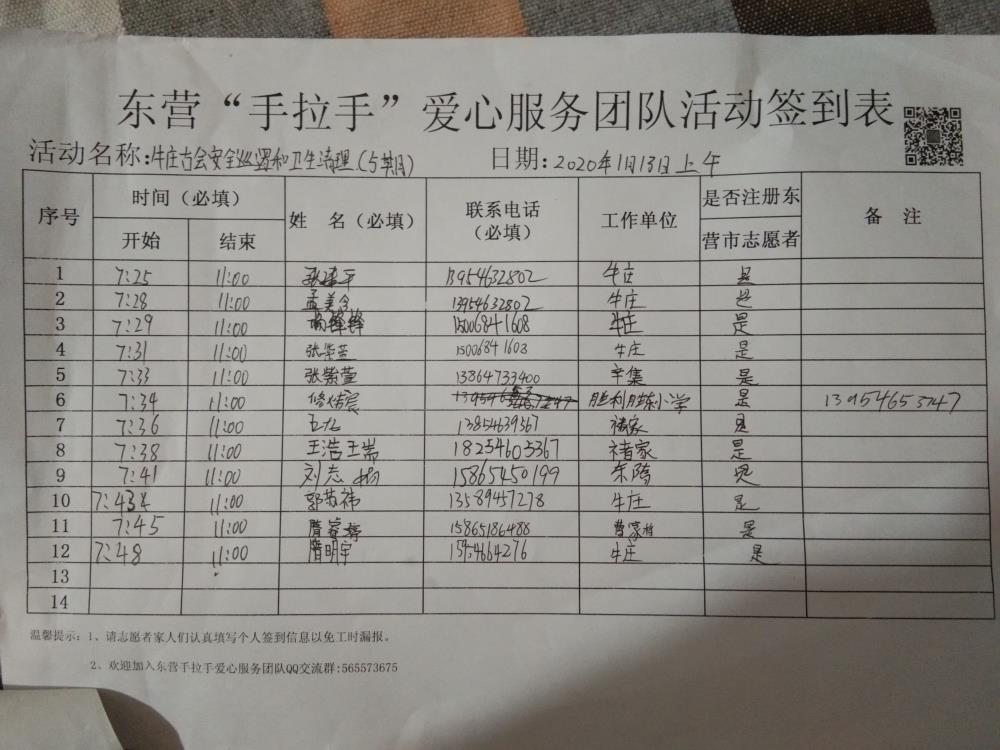 东营“手拉手”爱心服务团队活动签到表
活动名称:牛庄古会安全巡逻和卫生清理(5期) 日期:2020年1月13日上午
序号 时间（必填） 姓 名（必填） 联系电话（必填） 工作单位 是否注册东营市志愿者 备 注
开始 结束
1 7:25 11:00 张建平 13954632802 牛庄 是
2 7:28 11:00 孟美含 13954632802 牛庄 是
3 7:29 11:00 15006841608 牛庄 是
4 7:31 11:00 张紫萱 15006841603 牛庄 是
5 7:33 11:00 张紫萱 13864733400 辛集 是
6 7:34 11:00 修炜宸 胜利胜东小学 是 13954653747
7 7:36 11:00 13854639367 褚家 是
8 7:38 11:00 王浩王崇 18254605367 褚家 是
9 7:41 11:00 刘志杨 15865450199 东隋 是
10 7:43 11:00 郭苏祎 13589457278 牛庄 是
11 7:45 11:00 15865186488 曹家村 是
12 7:48 11:00 隋明宇 牛庄 是
13
14
温馨提示：1、请志愿者家人们认真填写个人签到信息以免工时漏报。
2、欢迎加入东营手拉手爱心服务团队QQ交流群:565573675